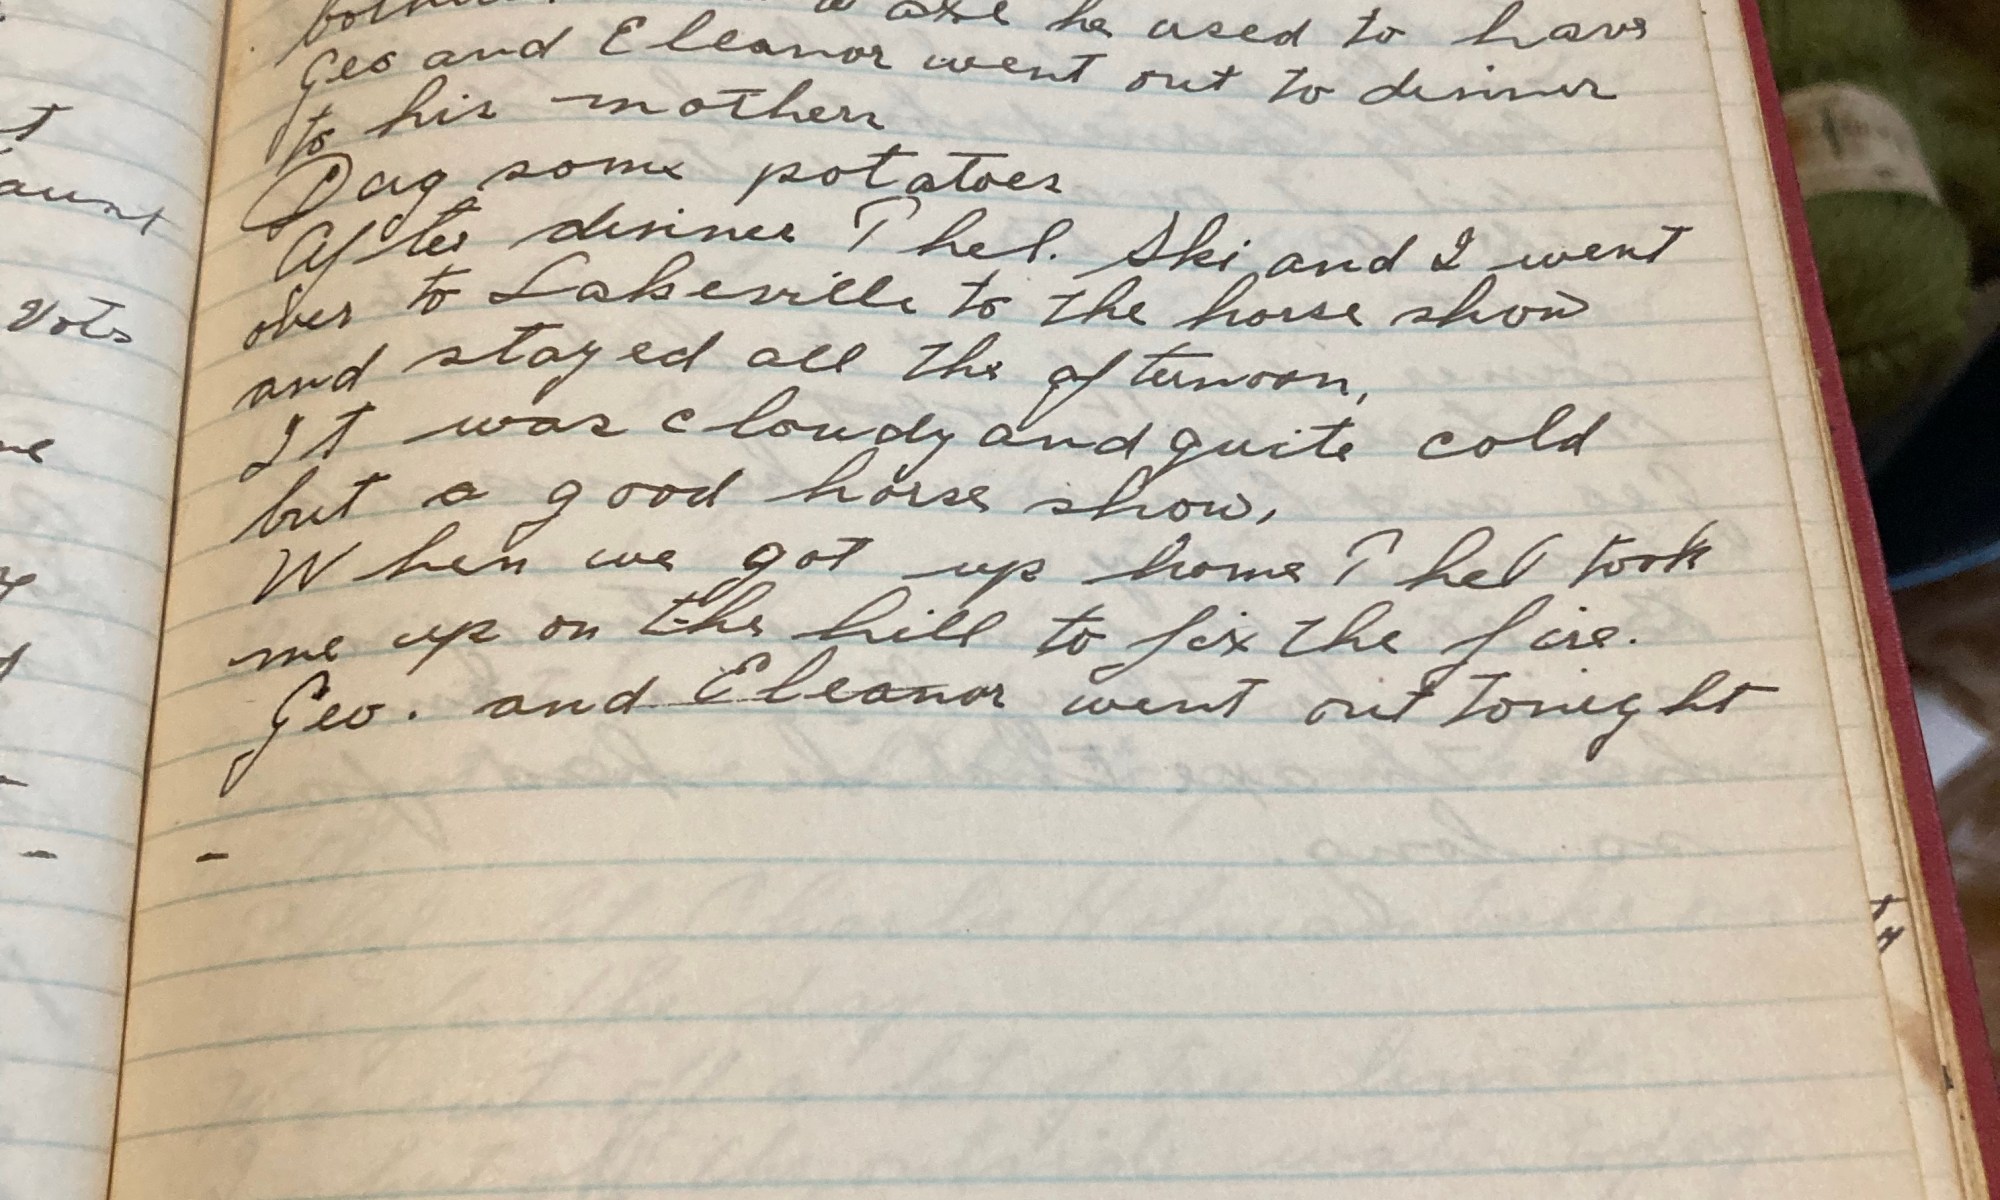 he used to have
Geo and Eleanor went out to dinner
to his mothers
Dug some potatoes
After dinner Thel. Ski and I went
over to Lakeville to the horse show
and stayed all the afternoon,
It was cloudy and quite cold
but a good horse show,
When we got up home Thel took
me up on the hill to fix the fire.
Geo. and Eleanor went out tonight
-
aunt
Vots
-